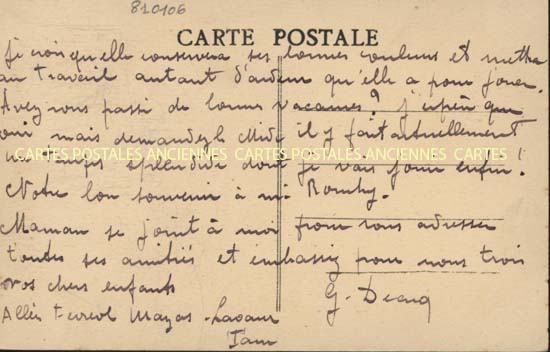 810106
CARTE POSTALE
je crois qu'elle conservera ses bonnes couleurs et mettra
au travail autant d'ardeur qu'elle a pour jouer.
Avez vous passé de bonnes vacances? j'espère que
oui mais demandez le Midi il y fait actuellement
un temps splendide dont je vais jouir enfin!
CARTES POSTALES ANCIENNES CARTES POSTALES ANCIENNES CARTES
Notre bon souvenir à mr
Maman se joint à moi pour vous adresser
toutes ses amitiés et embassez pour nous trois
vos chers enfants
G.
Allées Mazas - Lavaur
Tarn